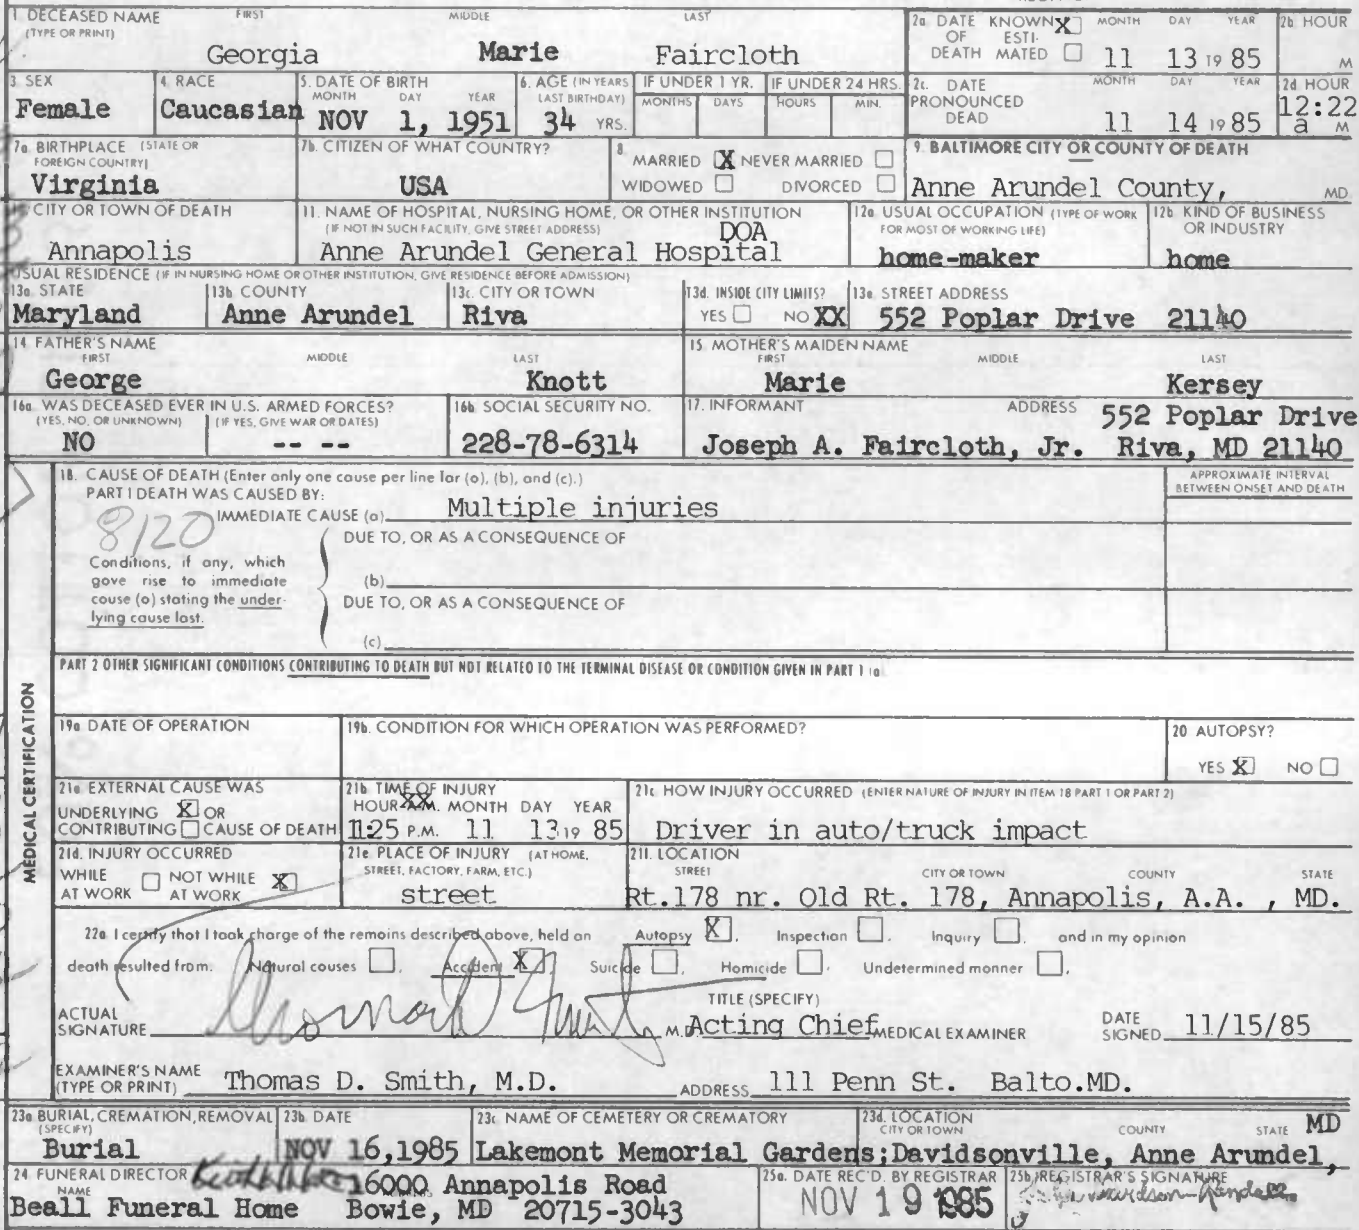 1. DECEASED NAME FIRST MIDDLE LAST
(TYPE OR PRINT)
Georgia Marie Faircloth
2a. DATE OF DEATH KNOWN X ESTIMATED MONTH DAY YEAR
11 13 19 85
2b. HOUR
M
3. SEX
Female
4. RACE
Caucasian
5. DATE OF BIRTH
MONTH DAY YEAR
NOV 1, 1951
6. AGE (IN YEARS LAST BIRTHDAY)
34 YRS.
IF UNDER 1 YR.
MONTHS DAYS
IF UNDER 24 HRS.
HOURS MIN.
2c. DATE PRONOUNCED DEAD MONTH DAY YEAR
11 14 19 85
2d. HOUR
12:22
a M
7a. BIRTHPLACE (STATE OR FOREIGN COUNTRY)
Virginia
7b. CITIZEN OF WHAT COUNTRY?
USA
8. MARRIED X NEVER MARRIED
WIDOWED DIVORCED
9. BALTIMORE CITY OR COUNTY OF DEATH
Anne Arundel County, MD.
CITY OR TOWN OF DEATH
Annapolis
11. NAME OF HOSPITAL, NURSING HOME, OR OTHER INSTITUTION
(IF NOT IN SUCH FACILITY, GIVE STREET ADDRESS) DOA
Anne Arundel General Hospital
12a. USUAL OCCUPATION (TYPE OF WORK FOR MOST OF WORKING LIFE)
home-maker
12b. KIND OF BUSINESS OR INDUSTRY
home
USUAL RESIDENCE (IF IN NURSING HOME OR OTHER INSTITUTION, GIVE RESIDENCE BEFORE ADMISSION)
13a. STATE
Maryland
13b. COUNTY
Anne Arundel
13c. CITY OR TOWN
Riva
13d. INSIDE CITY LIMITS?
YES NO XX
13e. STREET ADDRESS
552 Poplar Drive 21140
14. FATHER'S NAME
FIRST MIDDLE LAST
George Knott
15. MOTHER'S MAIDEN NAME
FIRST MIDDLE LAST
Marie Kersey
16a. WAS DECEASED EVER IN U.S. ARMED FORCES?
(YES, NO, OR UNKNOWN) (IF YES, GIVE WAR OR DATES)
NO -- --
16b. SOCIAL SECURITY NO.
228-78-6314
17. INFORMANT ADDRESS 552 Poplar Drive
Joseph A. Faircloth, Jr. Riva, MD 21140
18. CAUSE OF DEATH (Enter only one cause per line for (a), (b), and (c).)
PART I DEATH WAS CAUSED BY:
IMMEDIATE CAUSE (a) Multiple injuries
8120
DUE TO, OR AS A CONSEQUENCE OF
Conditions, if any, which
gave rise to immediate
cause (a) stating the under-
lying cause last.
(b)
DUE TO, OR AS A CONSEQUENCE OF
(c)
APPROXIMATE INTERVAL
BETWEEN ONSET AND DEATH
PART 2 OTHER SIGNIFICANT CONDITIONS CONTRIBUTING TO DEATH BUT NOT RELATED TO THE TERMINAL DISEASE OR CONDITION GIVEN IN PART 1 (a)
MEDICAL CERTIFICATION
19a. DATE OF OPERATION
19b. CONDITION FOR WHICH OPERATION WAS PERFORMED?
20 AUTOPSY?
YES X NO
21a. EXTERNAL CAUSE WAS
UNDERLYING X OR
CONTRIBUTING CAUSE OF DEATH
21b. TIME OF INJURY
HOUR XX M. MONTH DAY YEAR
11:25 P.M. 11 13 19 85
21c. HOW INJURY OCCURRED (ENTER NATURE OF INJURY IN ITEM 18 PART 1 OR PART 2)
Driver in auto/truck impact
21d. INJURY OCCURRED
WHILE AT WORK NOT WHILE AT WORK X
21e. PLACE OF INJURY (AT HOME, STREET, FACTORY, FARM, ETC.)
street
21f. LOCATION
STREET CITY OR TOWN COUNTY STATE
Rt.178 nr. Old Rt. 178, Annapolis, A.A. , MD.
22a. I certify that I took charge of the remains described above, held an Autopsy X, Inspection , Inquiry , and in my opinion
death resulted from. Natural causes , Accident X, Suicide , Homicide , Undetermined manner .
ACTUAL
SIGNATURE
TITLE (SPECIFY)
M.D. Acting Chief MEDICAL EXAMINER
DATE
SIGNED 11/15/85
EXAMINER'S NAME
(TYPE OR PRINT) Thomas D. Smith, M.D. ADDRESS 111 Penn St. Balto.MD.
23a. BURIAL, CREMATION, REMOVAL
(SPECIFY)
Burial
23b. DATE
NOV 16,1985
23c. NAME OF CEMETERY OR CREMATORY
Lakemont Memorial Gardens;
23d. LOCATION
CITY OR TOWN COUNTY STATE MD
Davidsonville, Anne Arundel,
24 FUNERAL DIRECTOR
NAME
16000 Annapolis Road
Beall Funeral Home Bowie, MD 20715-3043
25a. DATE REC'D. BY REGISTRAR
NOV 19 1985
25b. REGISTRAR'S SIGNATURE